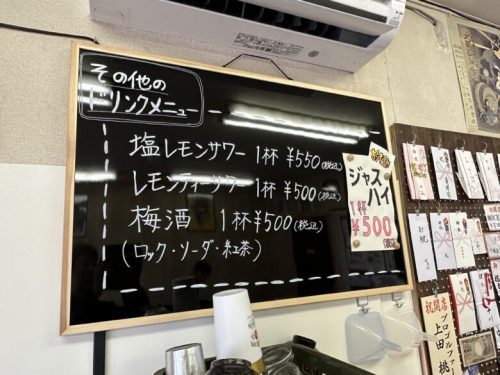 その他の
ドリンクメニュー
塩レモンサワー 1杯 ¥550(税込)
レモンティーサワー 1杯 ¥500(税込)
梅酒 1杯 ¥500(税込)
(ロック・ソーダ・紅茶)
ジャス
ハイ
1杯
¥500
お祝
祝開店
プロゴルファー
上田桃